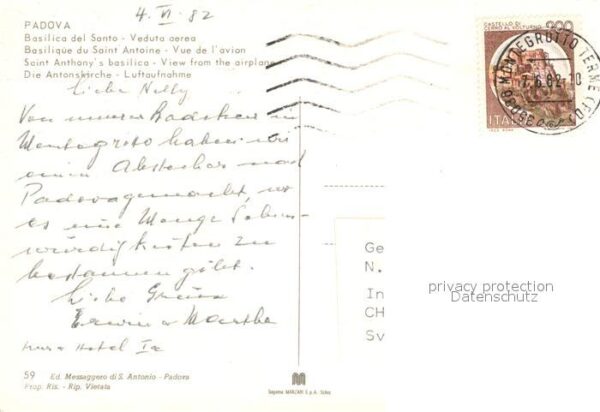 4. VI 82
PADOVA
Basilica del Santo - Veduta aerea
Basilique du Saint Antoine - Vue de l'avion
Saint Anthony's basilica - View from the airplane
Die Antonskirche - Luftaufnahme
Liebe Nelly
Von unserer Badekur in
Montegrotto haben wir
einen Abstecher nach
Padova gemacht, wo
es eine Menge Sehens-
würdigkeiten zu
bestaunen gibt.
Liebe Grüsse
Erwin + Marthe
Hotel
59 Ed. Messaggero di S. Antonio - Padova
Prop. Ris. - Rip. Vietata
CASTELLO DI
CERRO AL VOLTURNO 200
ITALIA
MONTEGROTTO TERME (PD)
7.6.82-10
35036
Ge
N.
In
CH
Sv
privacy protection
Datenschutz
M